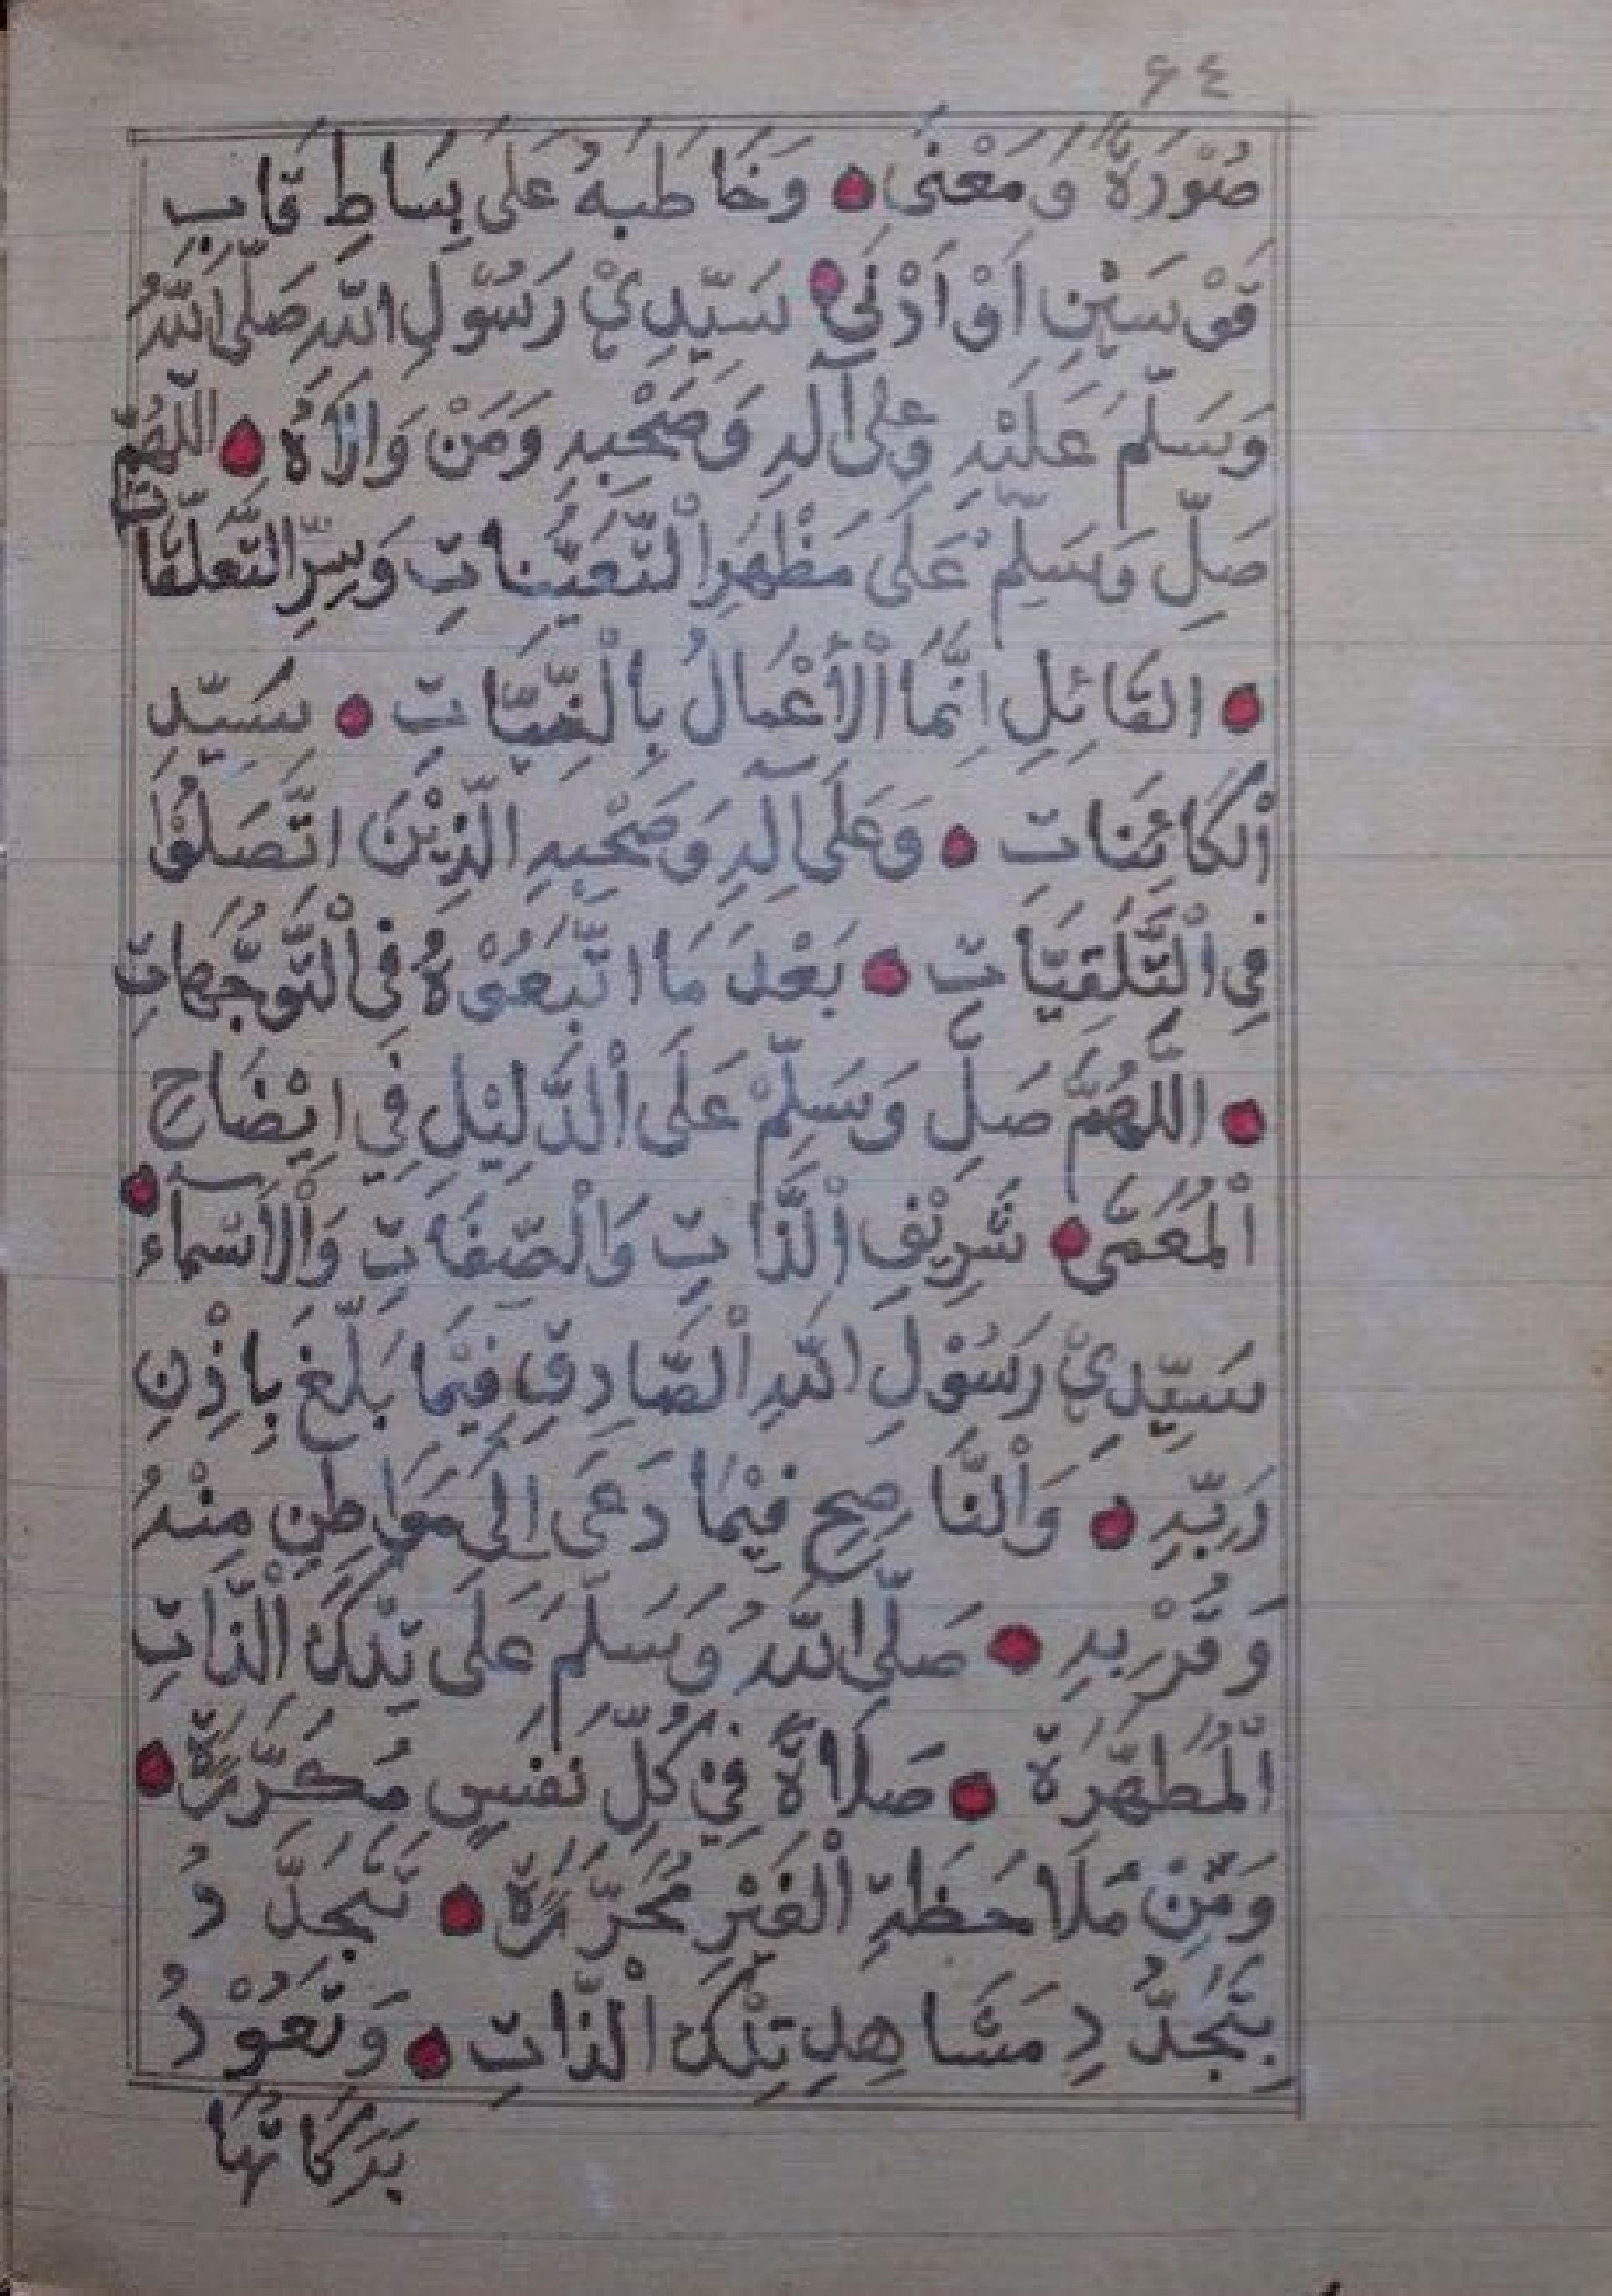 ٦٤
صُوْرَةً وَمَعْنًى ● وَخَاطَبَهُ عَلَى بِسَاطِ قَابِ
قَوْسَيْنِ اَوْ اَدْنَى ● سَيِّدِيْ رَسُوْلِ اللّٰهِ صَلَّى اللّٰهُ
وَسَلَّمَ عَلَيْهِ وَعَلَى آلِهِ وَصَحْبِهِ وَمَنْ وَالَاهُ ● اللّٰهُمَّ
صَلِّ وَسَلِّمْ عَلَى مَظْهَرِ الْتَّعَيُّنَاتِ وَسِرِّ التَّعَلُّقَاتِ
● القَائِلِ اِنَّمَا اْلأَعْمَالُ بِالْنِّيَّاتِ ● سَيِّدِ
اْلكَائِنَاتِ ● وَعَلَى آلِهِ وَصَحْبِهِ الَّذِيْنَ اتَّصَلُوْا
فِي الْتَّلَقِيَّاتِ ● بَعْدَ مَا اتَّبَعُوْهُ فِى الْتَّوَجُّهَاتِ
● اللَّهُمَّ صَلِّ وَسَلِّمْ عَلَى اْلدَّلِيْلِ فِي اِيْضَاحِ
اْلمُعَمَّى ● شَرِيْفِ الْذَّاتِ وَالْصِّفَاتِ وَاْلاَسْمَآءِ ●
سَيِّدِيْ رَسُوْلِ اللّٰهِ اْلصَّادِقِ فِيْمَا بَلَّغَ بِاِذْنِ
رَبِّهِ ● وَاْلنَّاصِحِ فِيْمَا دَعَى اِلَى مَوَاطِنِ مِنْهُ
وَقُرْبِهِ ● صَلَّى اللّٰهُ وَسَلَّمَ عَلَى تِلْكَ اْلذَّاتِ
الْمُطَهَّرَة ● صَلَاةً فِيْ كُلِّ نَفَسٍ مُكَرَّرَةً ●
وَمِنْ مُلَاحَظَةِ اْلغَيْرِ مُحَرَّرَةً ● تَتَجَدَّدُ
بِتَجَدُّدِ مَشَاهِدِ تِلْكَ اْلذَّاتِ ● وَتَعُوْدُ
بَرَكَاتُهَا